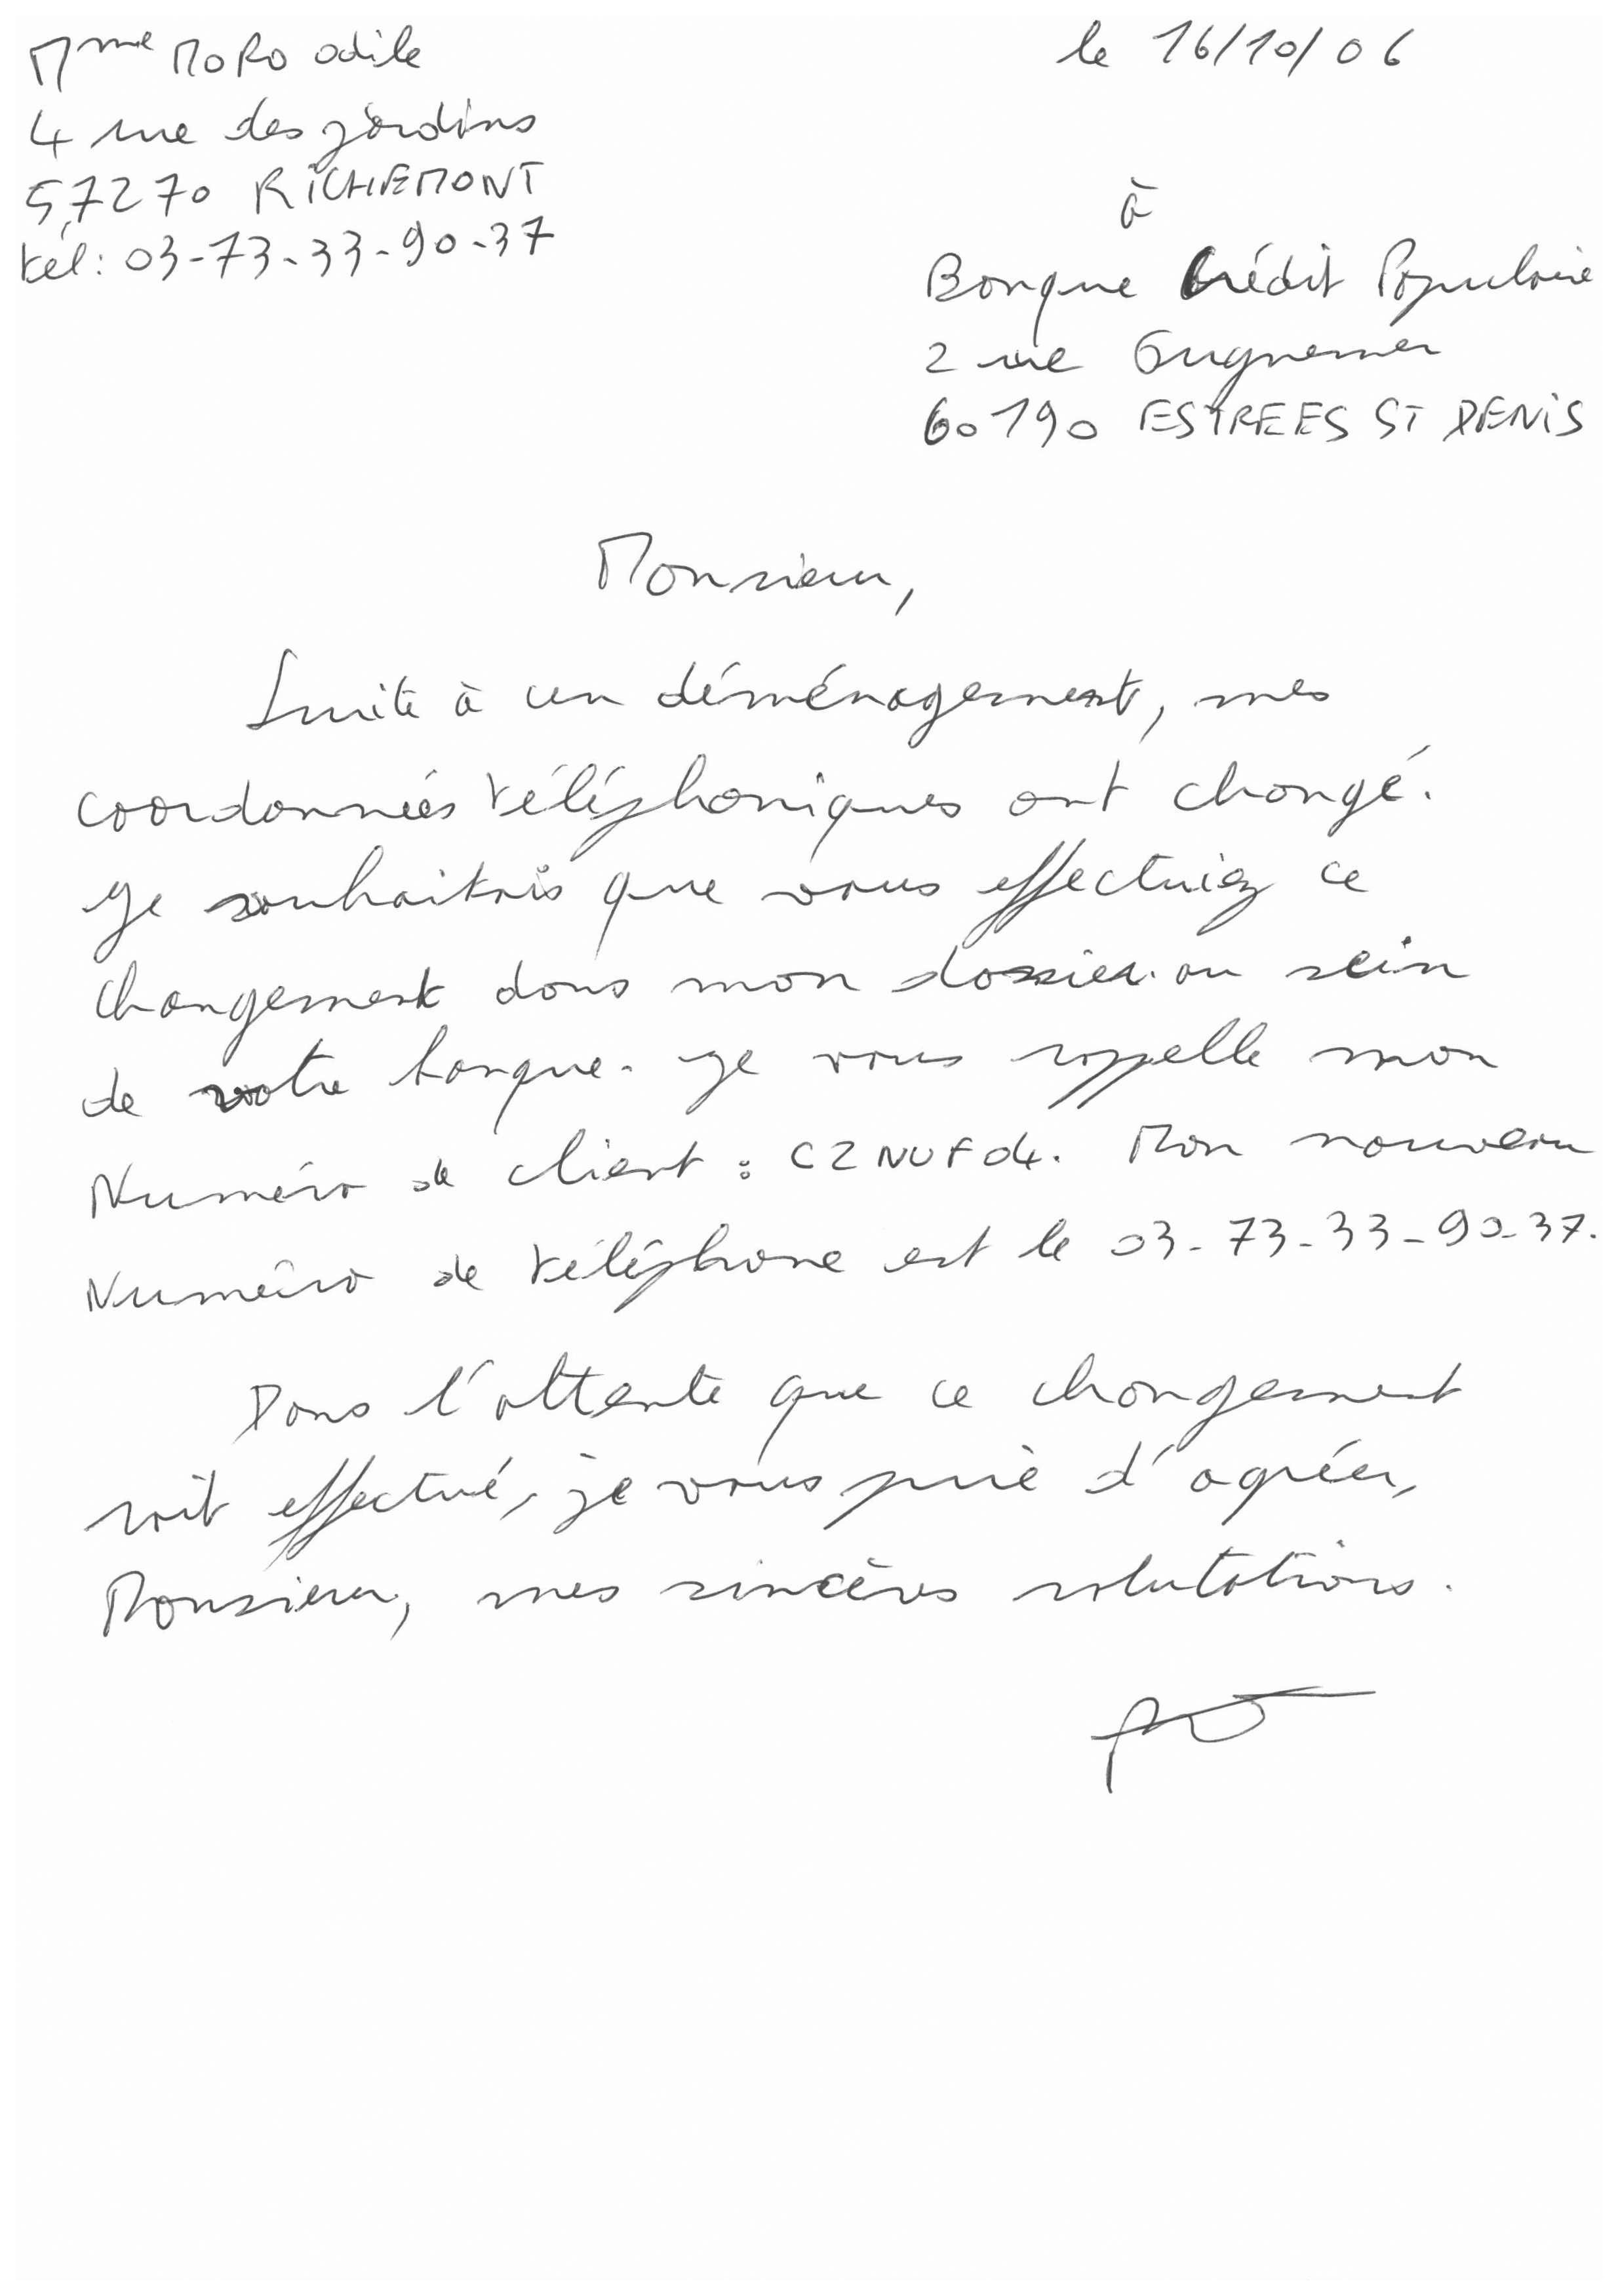 Mme MORO Odile
4 rue des jardins
57270 RICHEMONT
tél : 03-73-33-90-37
le 16/10/06
à
Banque Crédit Populaire
2 rue Guynemer
60190 ESTREES ST DENIS
Monsieur,
Suite à un déménagement, mes
coordonnées téléphoniques ont changé.
Je souhaitais que vous effectuiez ce
changement dans mon dossier au sein
de votre banque. Je vous rappelle mon
Numéro de client : CZNUF04. Mon nouveau
Numéro de téléphone est le 03-73-33-90-37.
Dans l'attente que ce changement
soit effectué, je vous prie d'agréer,
Monsieur, mes sincères salutations.